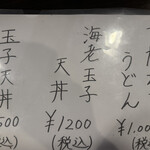 うどん
¥1,00
(税込
海老玉子
天丼
¥1200
(税込)
玉子天丼
500
税込)